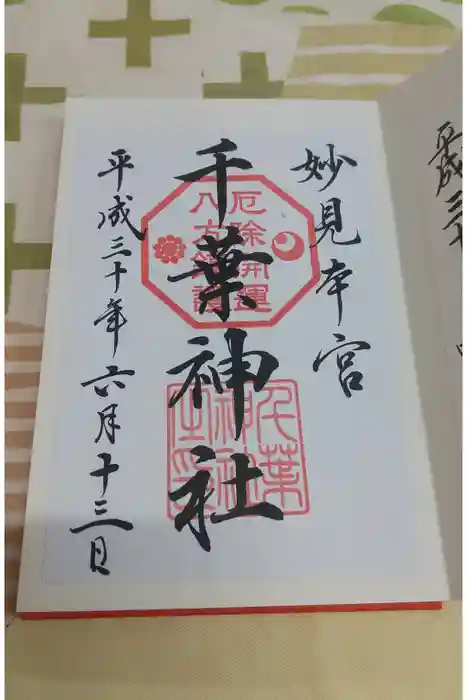 妙見本宮
千葉神社
平成三十年六月十三日
厄除開運
八方
千葉
神社
平成三十